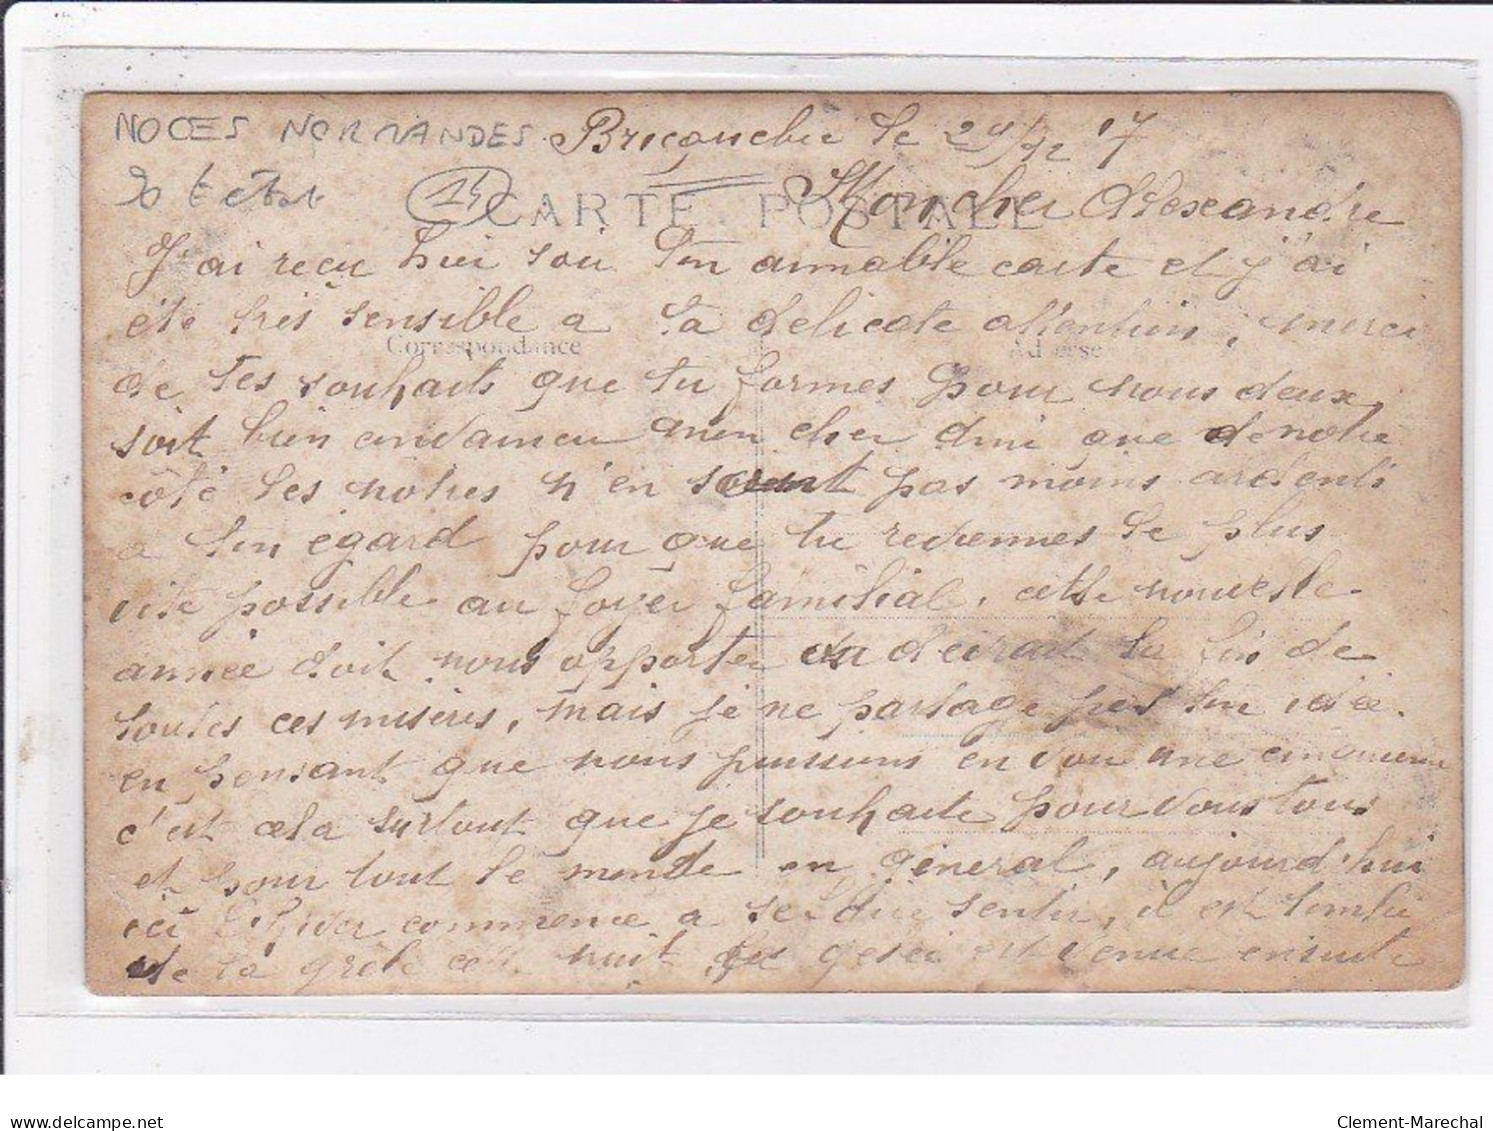 NOCES NORMANDES. Bricquebec le 24/12 17
14 CARTE POSTALE
Mon cher Alexandre
J'ai reçu hier soir ton aimable carte et j'ai
été très sensible a ta delicate attention, merci
Correspondance Adresse
de tes souhaits que tu formes pour nous deux,
soit bien convaincu mon cher Ami que de notre
côté les notres n'en soient pas moins ardents
a ton égard pour que tu reviennes le plus
vite possible au foyer familial. cette nouvelle
année doit nous apporter ou devrait la fin de
toutes ces misères, mais je ne partage pas ton idée.
en pensant que nous puissions en voir une
c'est cela surtout que je souhaite pour vous tous
et pour tout le monde en général, aujourd'hui
ici l'hiver commence a se faire sentir, il est tombé
de la grèle cett nuit la gelée est venue ensuite
delcampe.net
Clement-Marechal